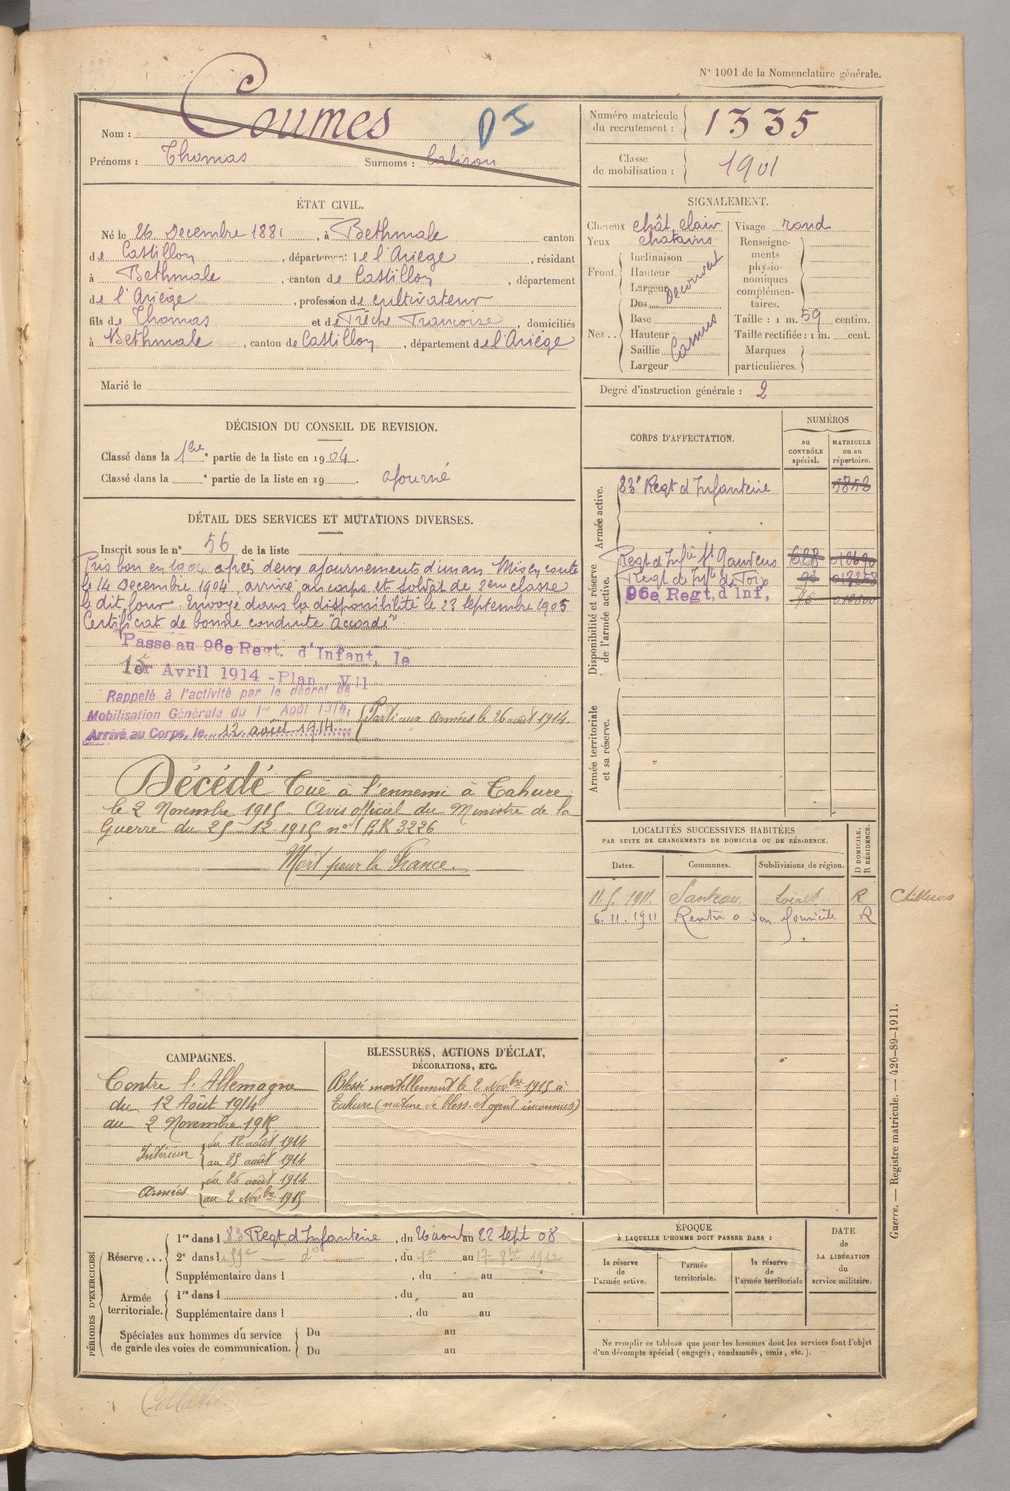 N° 1001 de la Nomenclature générale.
Nom : Coumes
D I
Prénoms : Thomas Surnoms :
Numéro matricule du recrutement : 1335
Classe de mobilisation : 1901
ÉTAT CIVIL.
Né le 26 Decembre 1881, à Bethmale canton
de Castillon, département de l'Ariège, résidant
à Bethmale, canton de Castillon, département
de l'Ariège, profession de cultivateur
fils de Thomas et de Trêche Françoise, domiciliés
à Bethmale, canton de Castillon, département de l'Ariège
Marié le
SIGNALEMENT.
Cheveux chât. clair
Yeux chatains
Front.
Inclinaison
Hauteur
Largeur
Découvert
Nez...
Dos
Base
Hauteur
Saillie
Largeur
Camus
Visage rond
Renseignements physionomiques complémentaires.
Taille : 1 m. 59 centim.
Taille rectifiée : 1 m. cent.
Marques particulières.
Degré d'instruction générale : 2
DÉCISION DU CONSEIL DE REVISION.
Classé dans la 1ère partie de la liste en 1904.
Classé dans la ° partie de la liste en 19 . ajourné
CORPS D'AFFECTATION.
NUMÉROS
au CONTRÔLE spécial.
MATRICULE ou au répertoire.
Armée active.
83e Regt d'Infanterie
Disponibilité et réserve de l'armée active.
Regt d'Infie St Gaudens
Regt de Infie de Foix
96e Regt, d'Inf,
Armée territoriale et sa réserve.
DÉTAIL DES SERVICES ET MUTATIONS DIVERSES.
Inscrit sous le n° 56 de la liste
Pris bon en 1904 après deux ajournements d'un an. Mis en route
le 14 Decembre 1904, arrivé au corps et soldat de 2eme classe
le dit jour. Envoyé dans la disponibilité le 23 Septembre 1905
Certificat de bonne conduite "accordé"
Passe au 96e Regt. d'Infant. le
1er Avril 1914 - Plan VII
Rappelé à l'activité par le décret de
Mobilisation Générale du 1er Août 1914,
Arrivé au Corps, le 12 août 1914
Parti aux armées le 26 août 1914.
Décédé Tué à l'ennemi à Tahure
le 2 Novembre 1915 Avis officiel du Ministre de la
Guerre du 25-12-1915 n° BK 3226
Mort pour la France.
LOCALITÉS SUCCESSIVES HABITÉES
PAR SUITE DE CHANGEMENTS DE DOMICILE OU DE RÉSIDENCE.
D DOMICILE. R RÉSIDENCE.
Dates. Communes. Subdivisions de région.
11.5.1911. Santeau Loiret R
6.11.1911 Rentré à son domicile R
CAMPAGNES.
Contre l'Allemagne
du 12 Août 1914
au 2 Novembre 1915
Intérieur du 12 août 1914
au 25 août 1914
Armées du 26 août 1914
au 2 Novbre 1915
BLESSURES, ACTIONS D'ÉCLAT,
DÉCORATIONS, ETC.
Blessé mortellement le 2 Novbre 1915 à
Tahure (nature de bless. et agent inconnus)
PÉRIODES D'EXERCICES
Réserve ...
1re dans l 83 Regt d'Infanterie, du 26 août au 22 Sept 08
2e dans l , du au
Supplémentaire dans l , du au
Armée territoriale.
1re dans l , du au
Supplémentaire dans l , du au
Spéciales aux hommes du service de garde des voies de communication.
Du au
Du au
ÉPOQUE
À LAQUELLE L'HOMME DOIT PASSER DANS :
la réserve de l'armée active.
l'armée territoriale.
la réserve de l'armée territoriale
DATE de LA LIBÉRATION du service militaire.
Ne remplir ce tableau que pour les hommes dont les services font l'objet
d'un décompte spécial (engagés, condamnés, omis, etc.).
Guerre. — Registre matricule. — 426-89-1911.